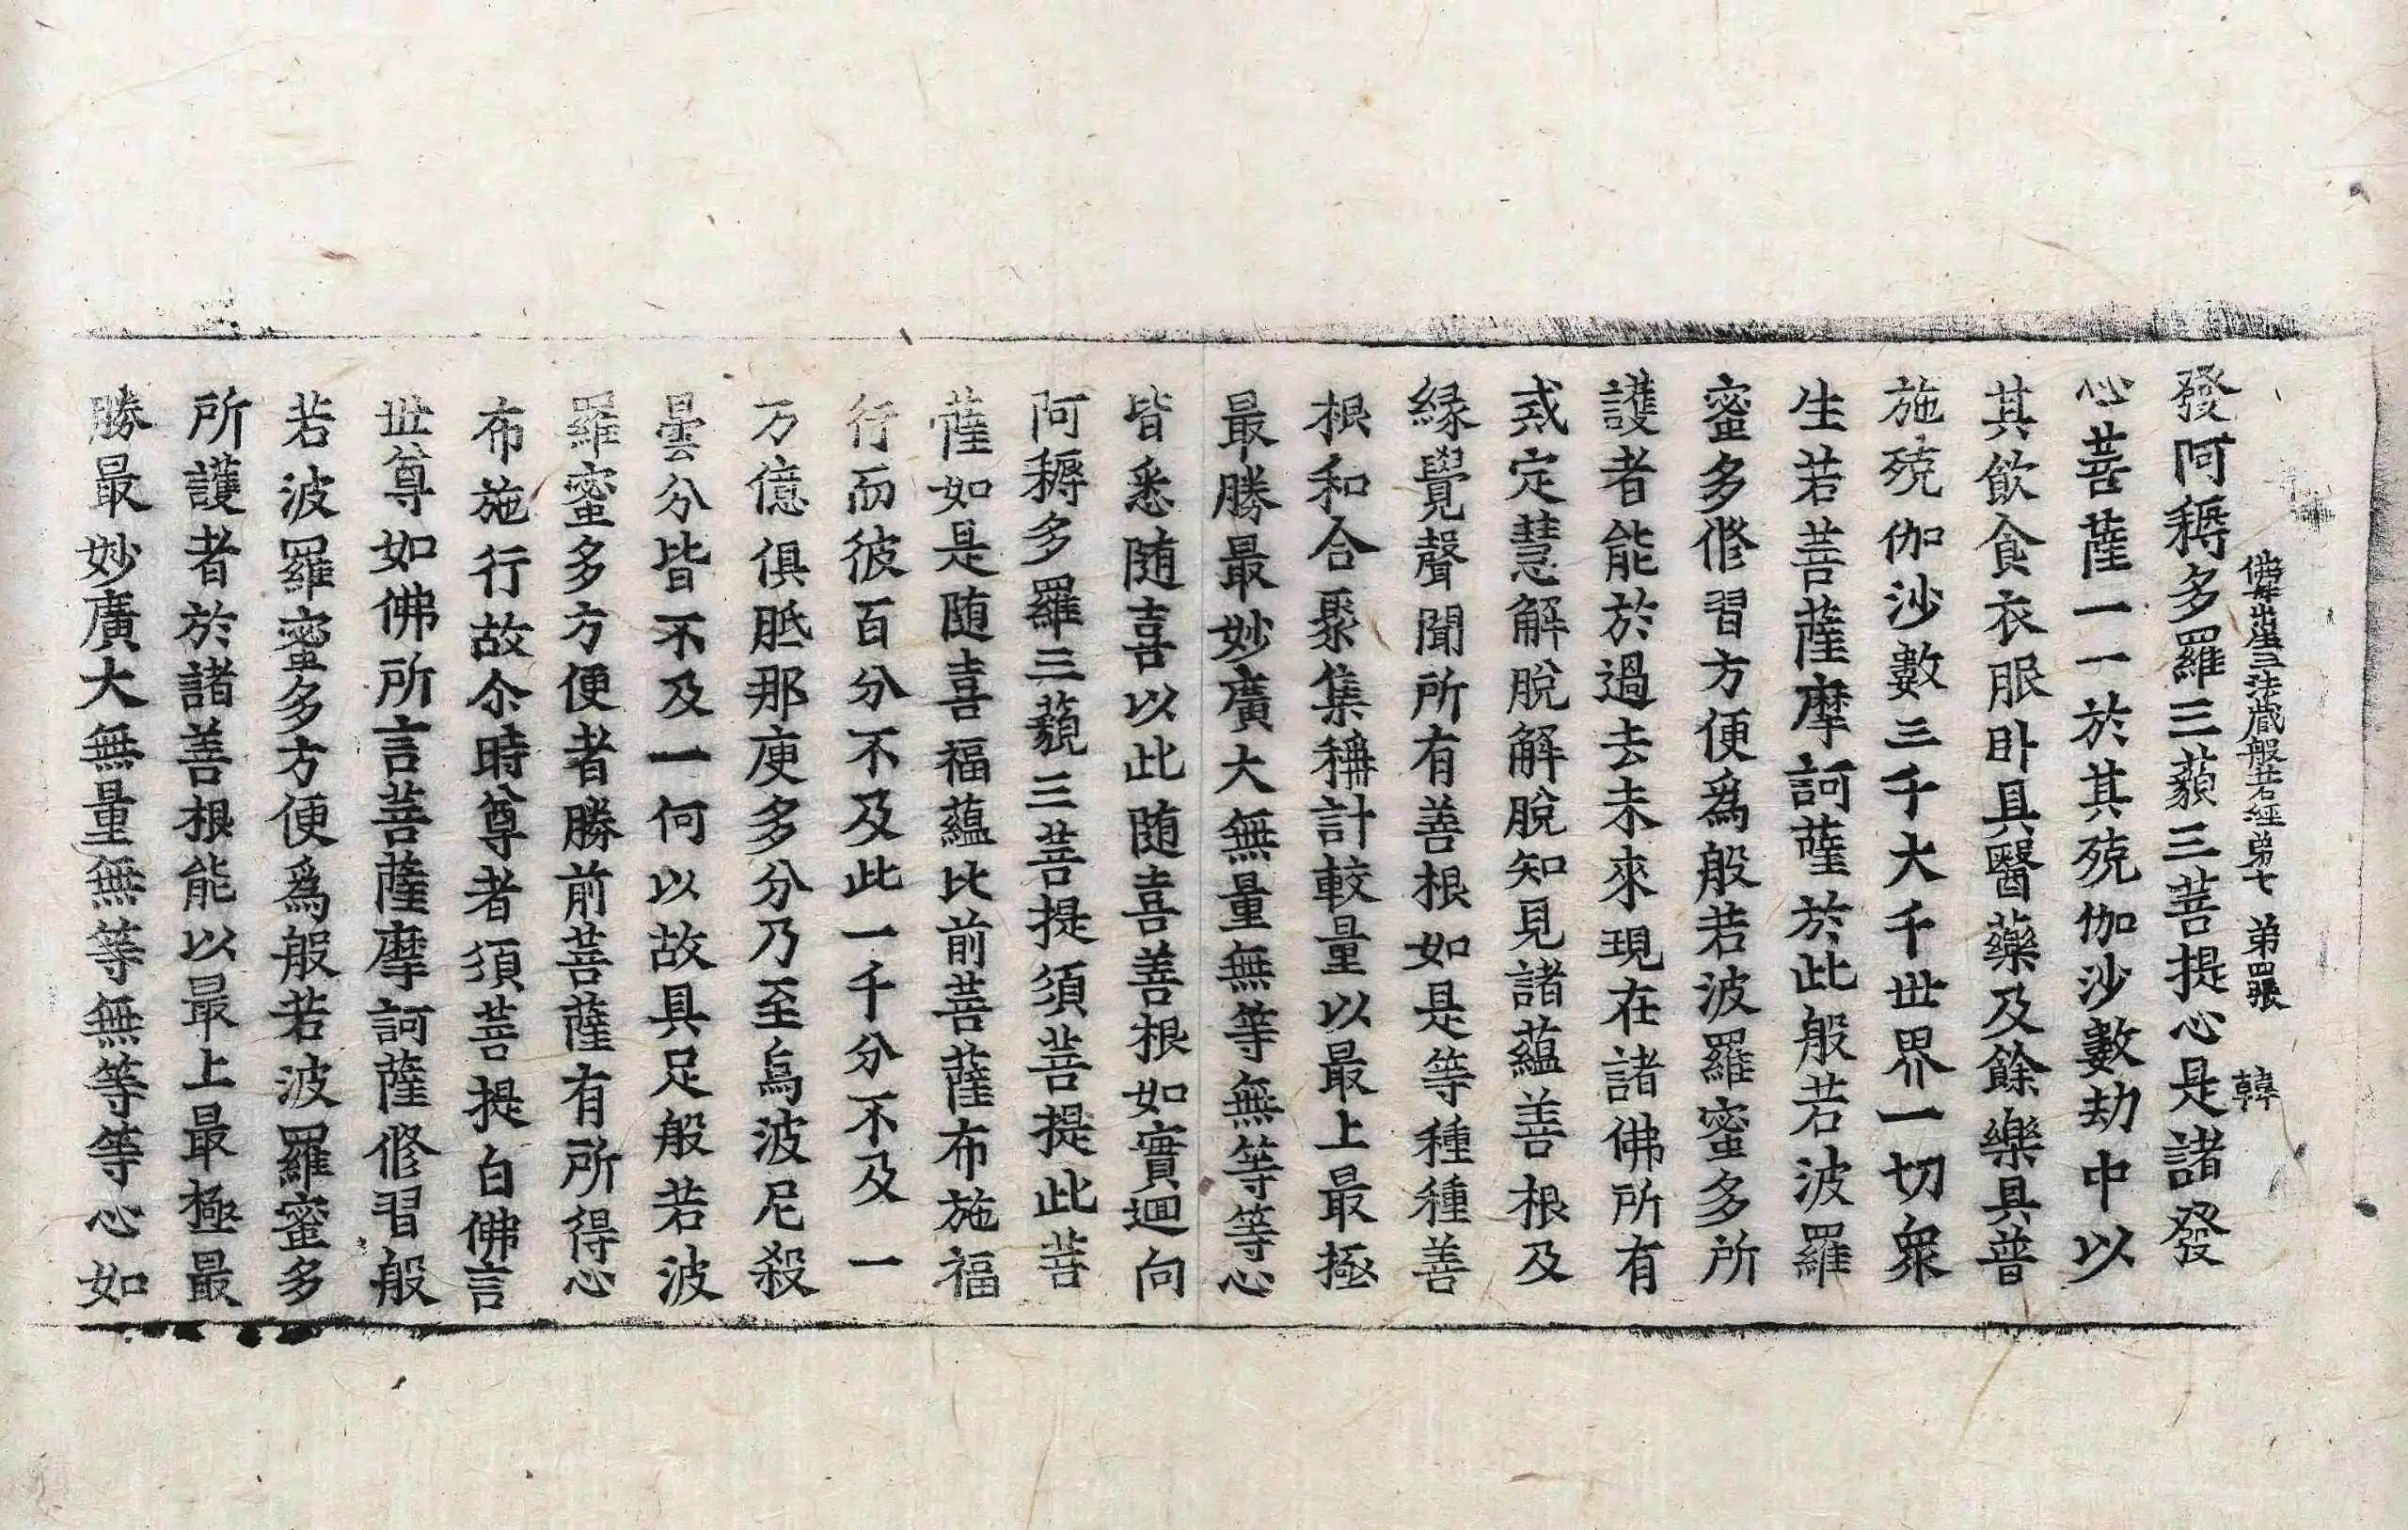 佛母出生三法藏般若經弟七 弟四張 韓
發阿耨多羅三藐三菩提心是諸發
心菩薩一一於其殑伽沙數劫中以
其飲食衣服卧具醫藥及餘樂具普
施殑伽沙數三千大千世界一切衆
生若菩薩摩訶薩於此般若波羅
蜜多修習方便爲般若波羅蜜多所
護者能於過去未來現在諸佛所有
戒定慧解脫解脫知見諸蘊善根及
緣覺聲聞所有善根如是等種種善
根和合聚集稱計較量以最上最極
最勝最妙廣大無量無等無等等心
皆悉随喜以此随喜善根如實迴向
阿耨多羅三藐三菩提須菩提此菩
薩如是随喜福蘊比前菩薩布施福
行而彼百分不及此一千分不及一
万億俱胝那庾多分乃至烏波尼殺
曇分皆不及一何以故具足般若波
羅蜜多方便者勝前菩薩有所得心
布施行故尒時尊者須菩提白佛言
世尊如佛所言菩薩摩訶薩修習般
若波羅蜜多方便爲般若波羅蜜多
所護者於諸善根能以最上最極最
勝最妙廣大無量無等無等等心如